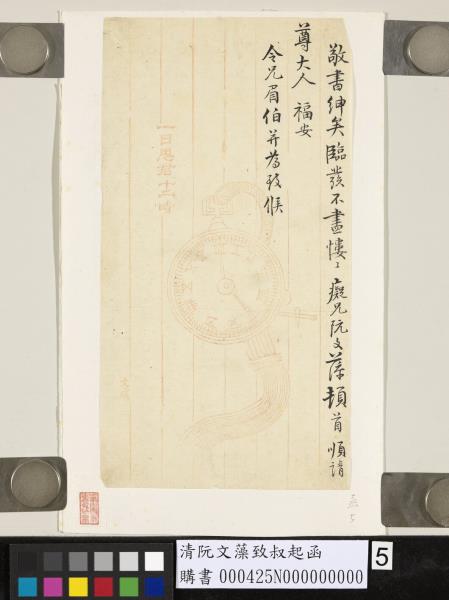 敬書紳矣臨發不盡悽〻癡兄阮文藻頓首順請
尊大人 福安
令兄眉伯并為致候
一日思君十二時
清阮文藻致叔起函
購書 000425N000000000
5